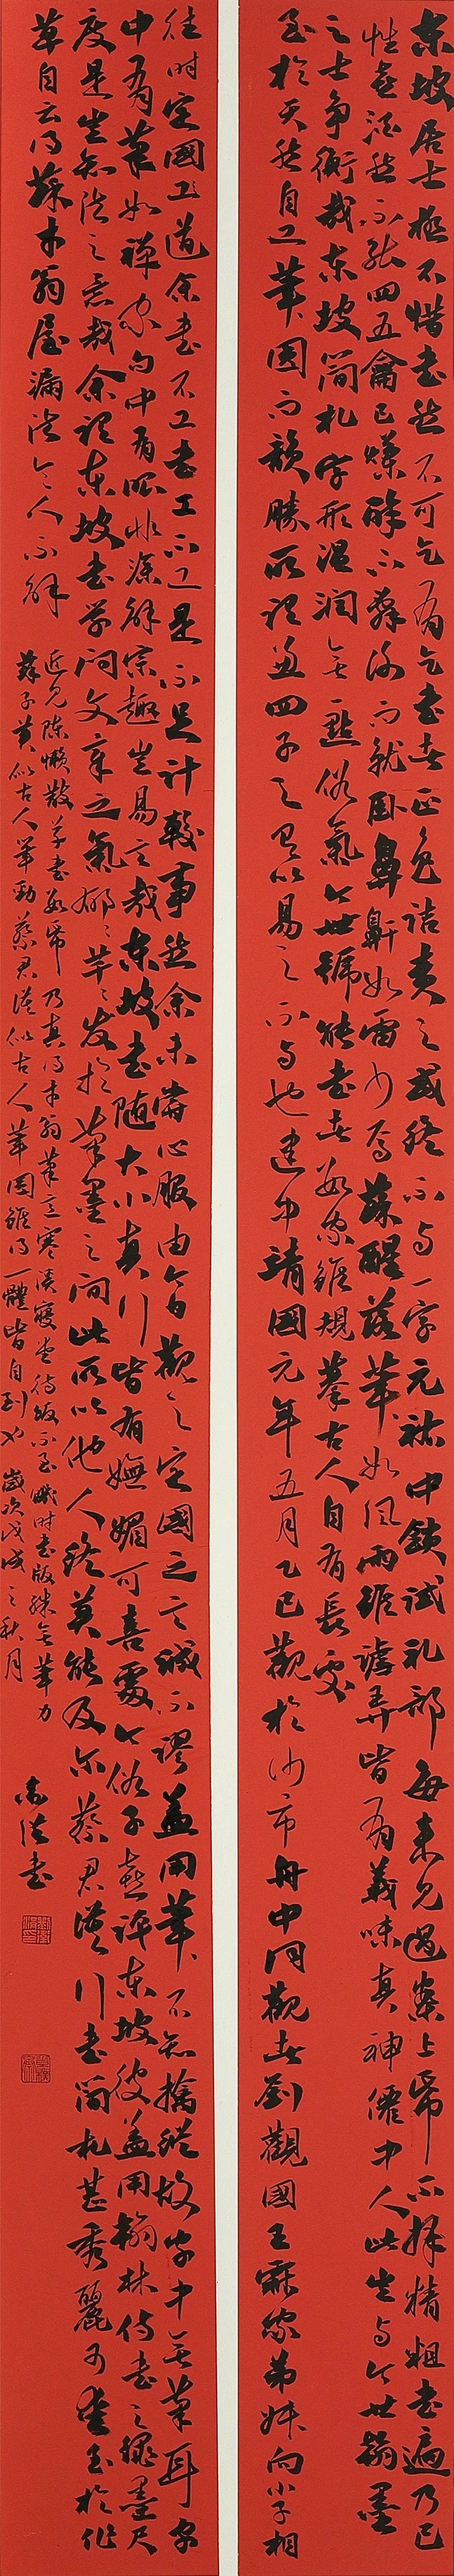 东坡居士极不惜书然不可乞有乞书者正色诘责之或终不与一字元祐中锁试礼部每来见过案上纸不择精粗书遍乃已
性喜酒然不能四五龠已烂醉不辞谢而就卧鼻鼾如雷少焉苏醒落笔如风雨虽谑弄皆有义味真神仙中人此岂与今世翰墨
之士争衡哉东坡简札字形温润无一点俗气今世号能书者数家虽规摹古人自有长处
至于天然自工笔圆而韵胜所谓兼四子之有以易之不与也建中靖国元年五月乙巳观于沙市舟中同观者刘观国王霖家弟叔向小子相
往时定国道余书不工书工不工是不足计较事然余未尝心服由今日观之定国之言诚不谬盖用笔不知擒纵故字中无笔耳字
中有笔如禅家句中有眼非深解宗趣岂易言哉东坡书随大小真行皆有妩媚可喜处今俗子喜评东坡彼盖用翰林侍书之绳墨尺
度是岂知法之意哉余谓东坡书学问文章之气郁郁芊芊发于笔墨之间此所以他人终莫能及尔蔡君谟行书简札甚秀丽可爱至于作
草自云得苏才翁屋漏法令人不解
近见陈懒散草书数纸乃真得才翁笔意寒溪寝堂待饭不至饥时书版殊无笔力
苏子美似古人笔劲蔡君谟似古人笔圆虽得一体皆自到也岁次戊戌之秋月
书